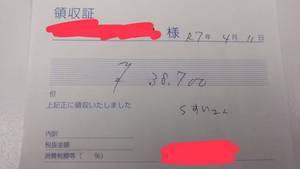 領収証
様 R7年 4月 11日
¥ 38,700
但
上記正に領収いたしました
内訳
税抜金額
消費税額等（ %）